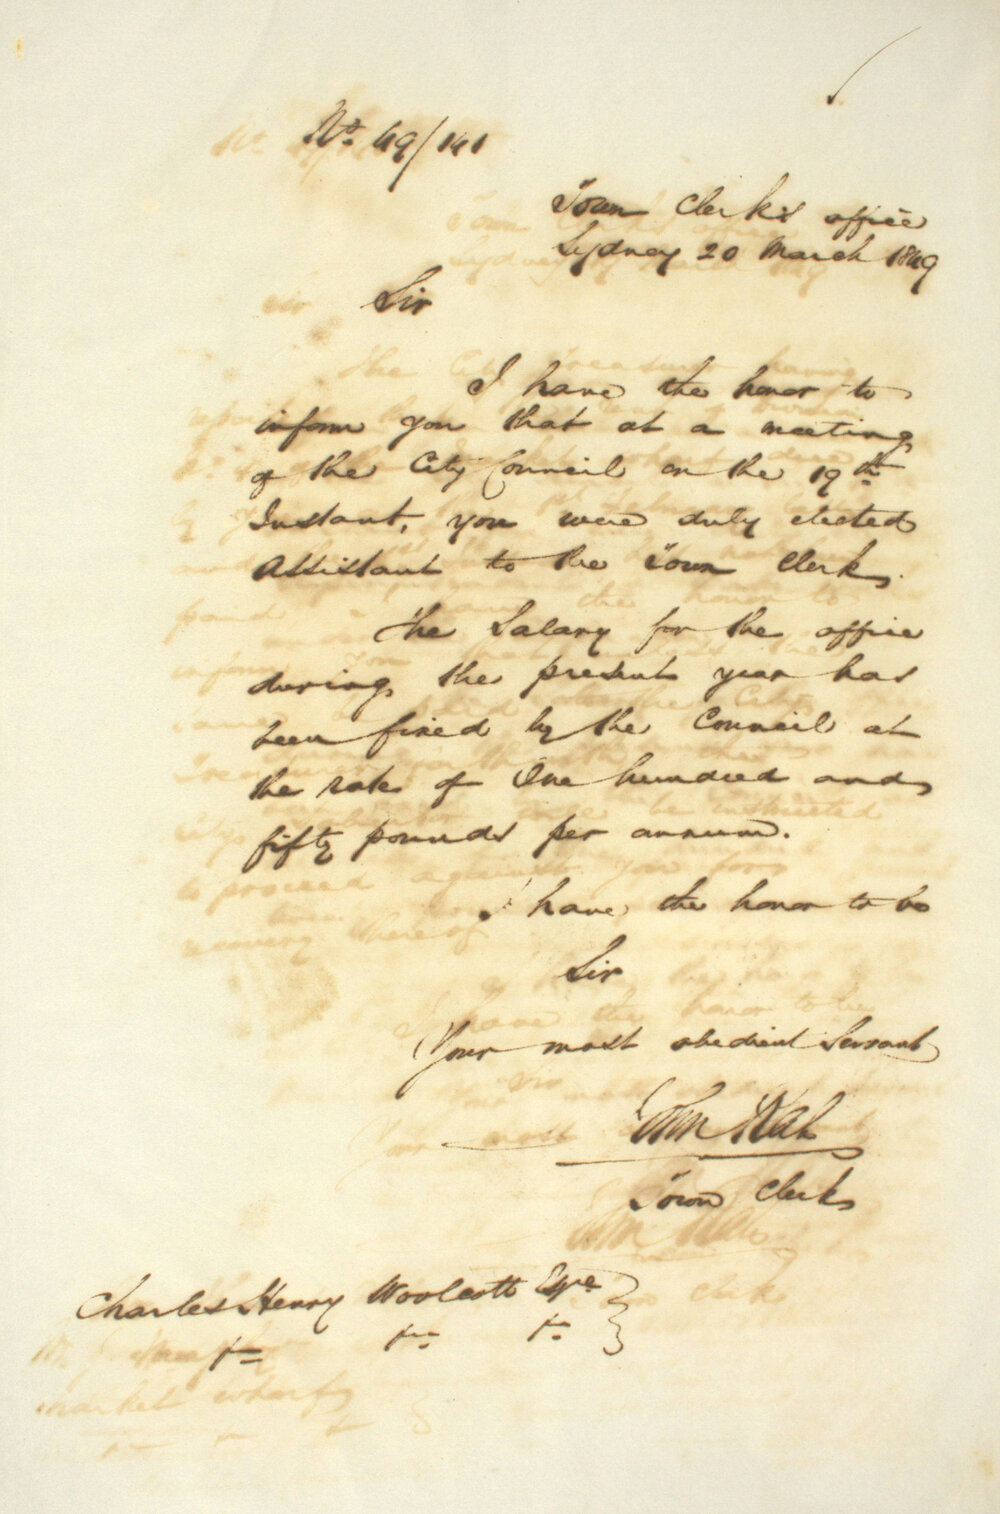 No. 49/141
Town Clerk's office
Sydney 20 March 1849
Sir
I have the honor to
inform you that at a meeting
of the City Council on the 19th
Instant, you were duly elected
Assistant to the Town Clerk.
The Salary for the office
during the present year has
been fixed by the Council at
the rate of One hundred and
fifty pounds per annum.
I have the honor to be
Sir
Your most obedient Servant
John Rae
Town Clerk
Charles Henry Woolcott Esqre